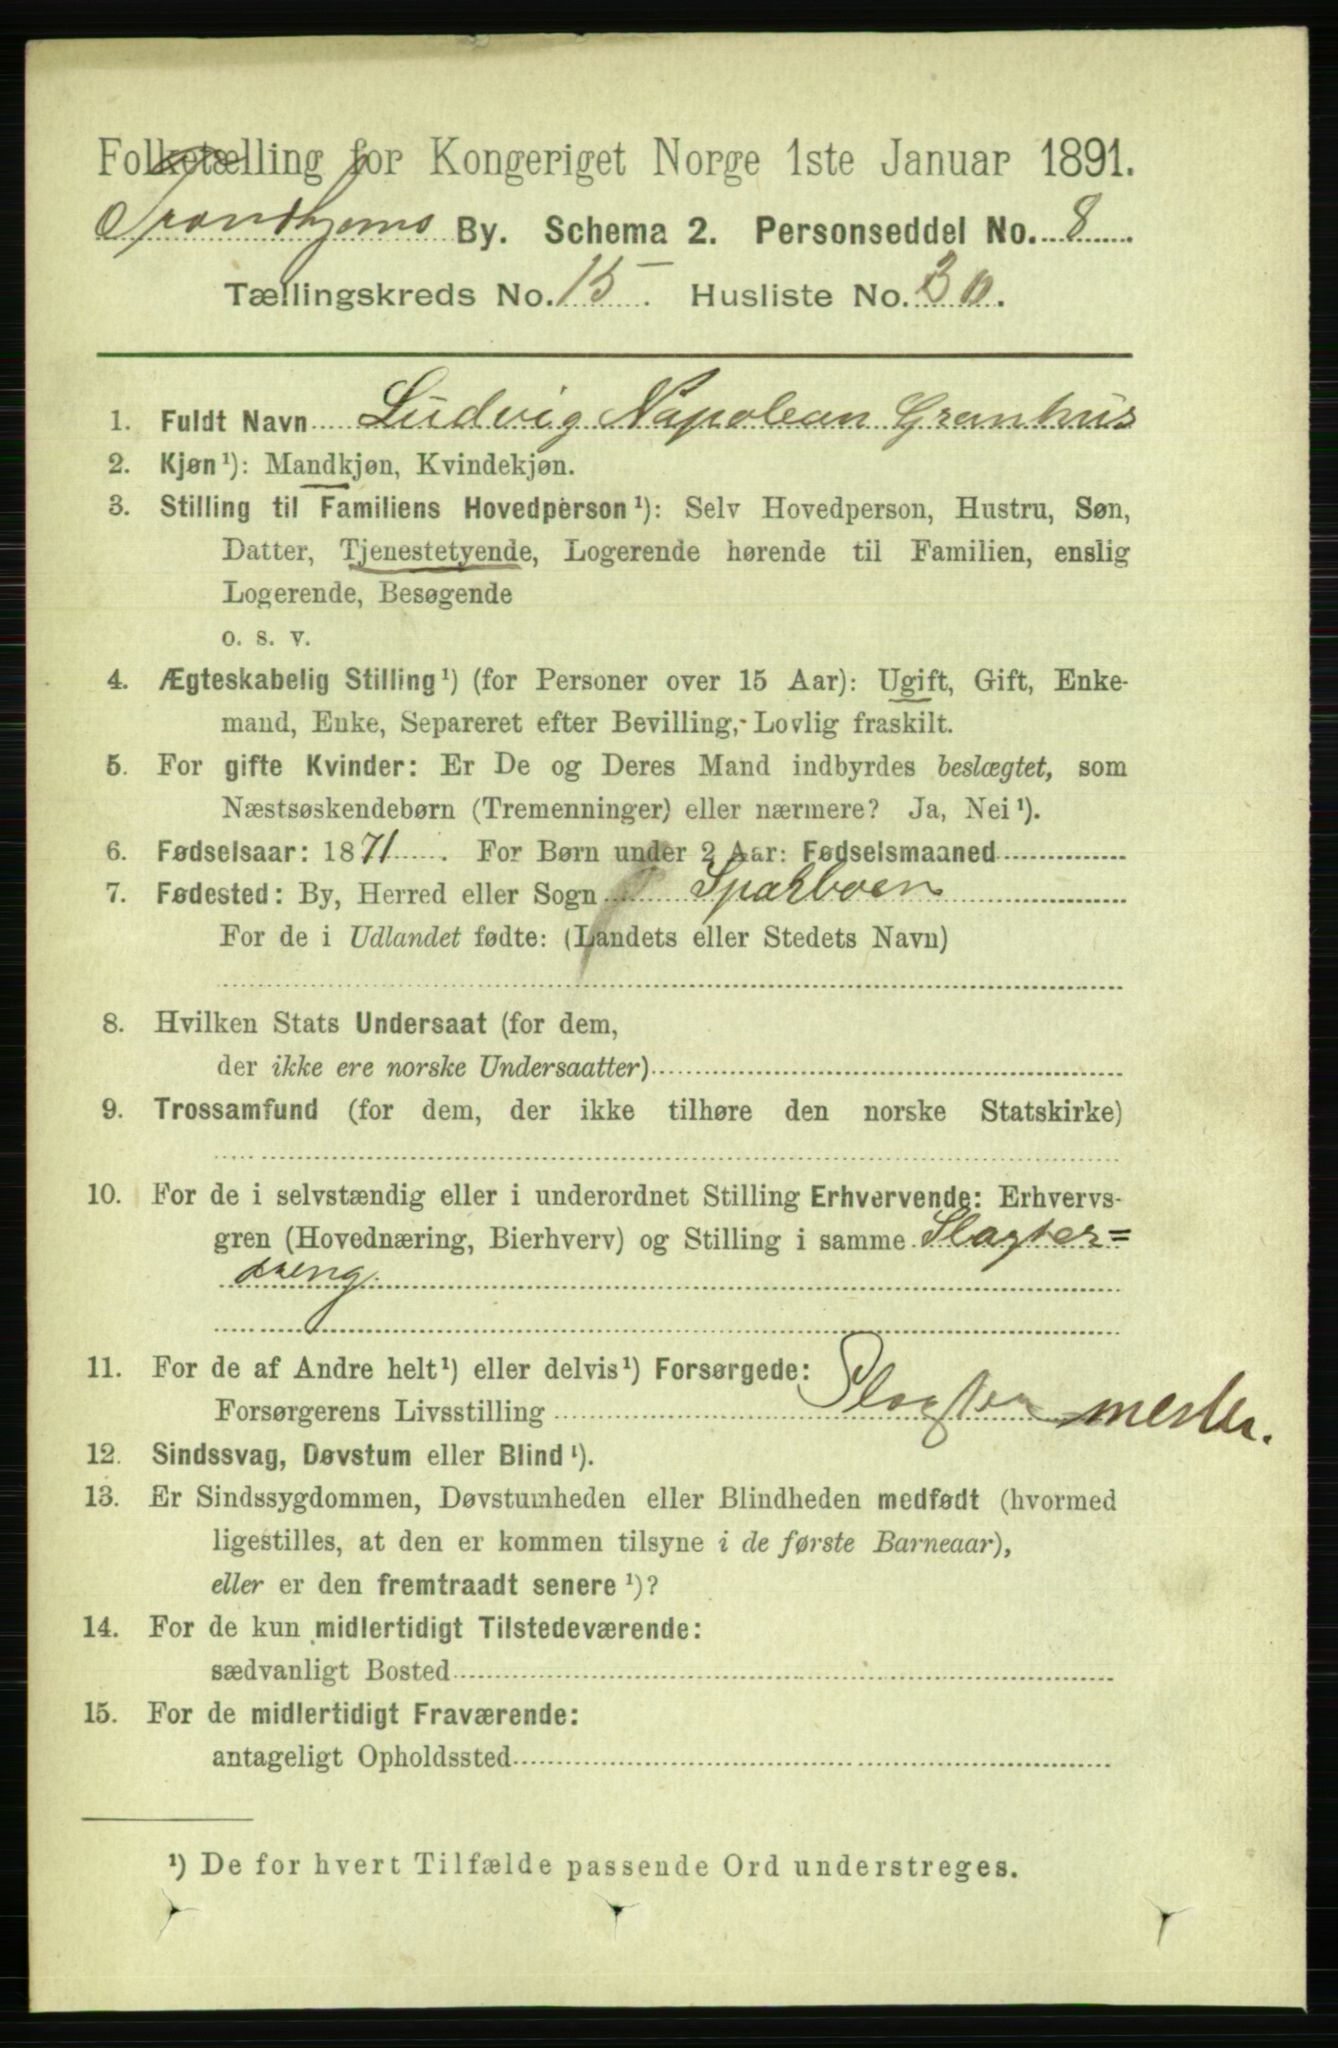 Folketælling for Kongeriget Norge 1ste Januar 1891.
Trondhjems By. Schema 2. Personseddel No. 8
Tællingskreds No. 15. Husliste No. 30.
1. Fuldt Navn Ludvig Napolean Granhus
2. Kjøn¹): Mandkjøn, Kvindekjøn.
3. Stilling til Familiens Hovedperson¹): Selv Hovedperson, Hustru, Søn,
Datter, Tjenestetyende, Logerende hørende til Familien, enslig
Logerende, Besøgende
o. s. v.
4. Ægteskabelig Stilling¹) (for Personer over 15 Aar): Ugift, Gift, Enke-
mand, Enke, Separeret efter Bevilling, Lovlig fraskilt.
5. For gifte Kvinder: Er De og Deres Mand indbyrdes beslægtet, som
Næstsøskendebørn (Tremenninger) eller nærmere? Ja, Nei¹).
6. Fødselsaar: 1871. For Børn under 2 Aar: Fødselsmaaned
7. Fødested: By, Herred eller Sogn Sparboen
For de i Udlandet fødte: (Landets eller Stedets Navn)
8. Hvilken Stats Undersaat (for dem,
der ikke ere norske Undersaatter)
9. Trossamfund (for dem, der ikke tilhøre den norske Statskirke)
10. For de i selvstændig eller i underordnet Stilling Erhvervende: Erhvervs-
gren (Hovednæring, Bierhverv) og Stilling i samme Slagter=
dreng
11. For de af Andre helt¹) eller delvis¹) Forsørgede:
Forsørgerens Livsstilling Slagtermester.
12. Sindssvag, Døvstum eller Blind¹).
13. Er Sindssygdommen, Døvstumheden eller Blindheden medfødt (hvormed
ligestilles, at den er kommen tilsyne i de første Barneaar),
eller er den fremtraadt senere¹)?
14. For de kun midlertidigt Tilstedeværende:
sædvanligt Bosted
15. For de midlertidigt Fraværende:
antageligt Opholdssted
¹) De for hvert Tilfælde passende Ord understreges.